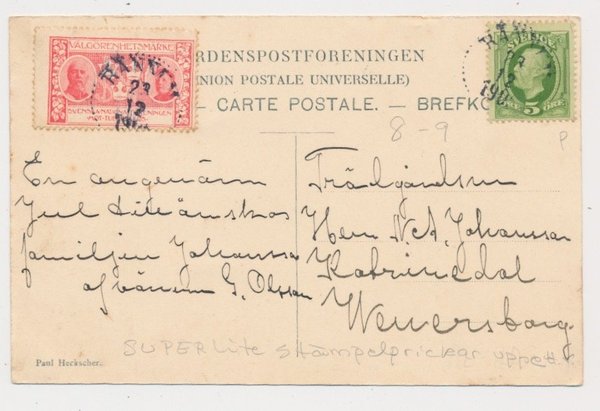 VÄLGÖRENHETSMÄRKE
SVENSKA NATIONALFÖRENINGEN
MOT TUBERKULOS
23
12
190
RDENSPOSTFORENINGEN
(UNION POSTALE UNIVERSELLE)
— CARTE POSTALE. — BREFKO
23
12
190
5 ÖRE
8-9
P
En angenäm
Jul tillönskas
familjen Johansson
af vännen G. Olsson
Trädgårdsm
Herr N.A. Johansson
Katrinedal
Wenersborg
Paul Heckscher.
SUPER lite stämpelprickar uppe t.v